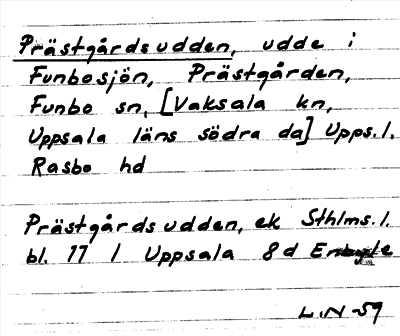 Prästgårdsudden, udde i
Funbosjön, Prästgården,
Funbo sn, [Vaksala kn,
Uppsala läns södra da] Upps.l.
Rasbo hd
Prästgårdsudden, ek Sthlms.l.
bl. 77 / Uppsala 8 d
L.N-59